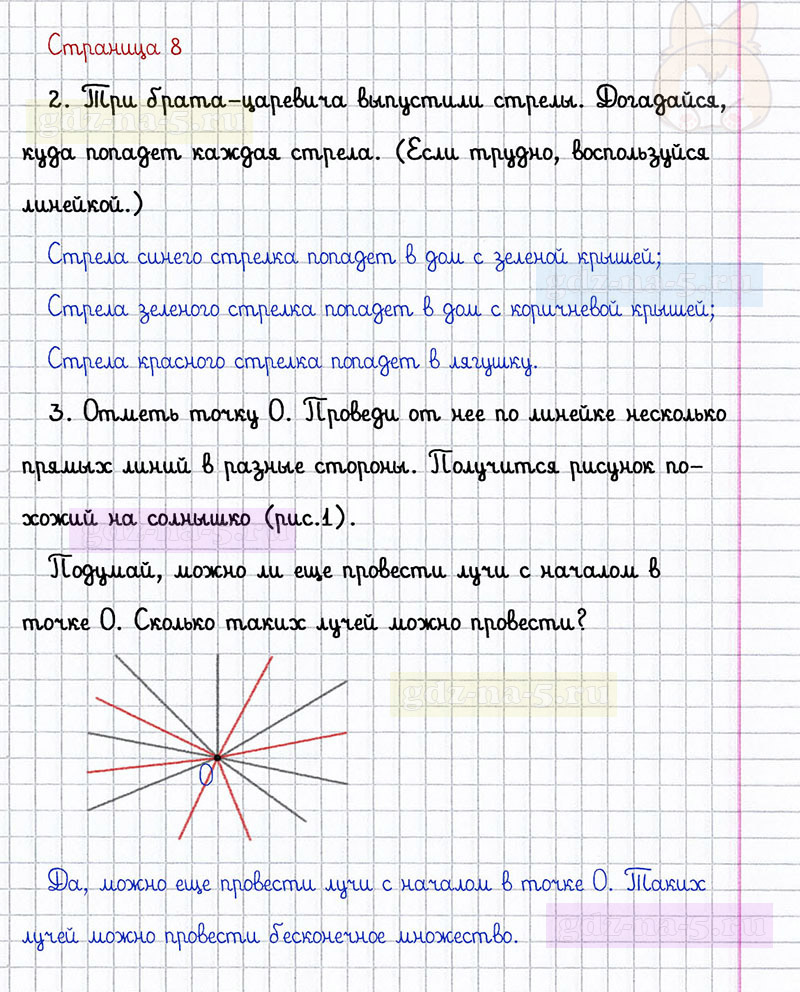 Страница 8
2. Три брата-царевича выпустили стрелы. Догадайся,
gdz-na-5.ru
куда попадет каждая стрела. (Если трудно, воспользуйся
линейкой.)
Стрела синего стрелка попадет в дом с зеленой крышей;
gdz-na-5.ru
Стрела зеленого стрелка попадет в дом с коричневой крышей;
Стрела красного стрелка попадет в лягушку.
3. Отметь точку О. Проведи от нее по линейке несколько
прямых линий в разные стороны. Получится рисунок по-
хожий на солнышко (рис.1).
gdz-na-5.ru
Подумай, можно ли еще провести лучи с началом в
точке О. Сколько таких лучей можно провести?
gdz-na-5.ru
О
Да, можно еще провести лучи с началом в точке О. Таких
лучей можно провести бесконечное множество.
gdz-na-5.ru